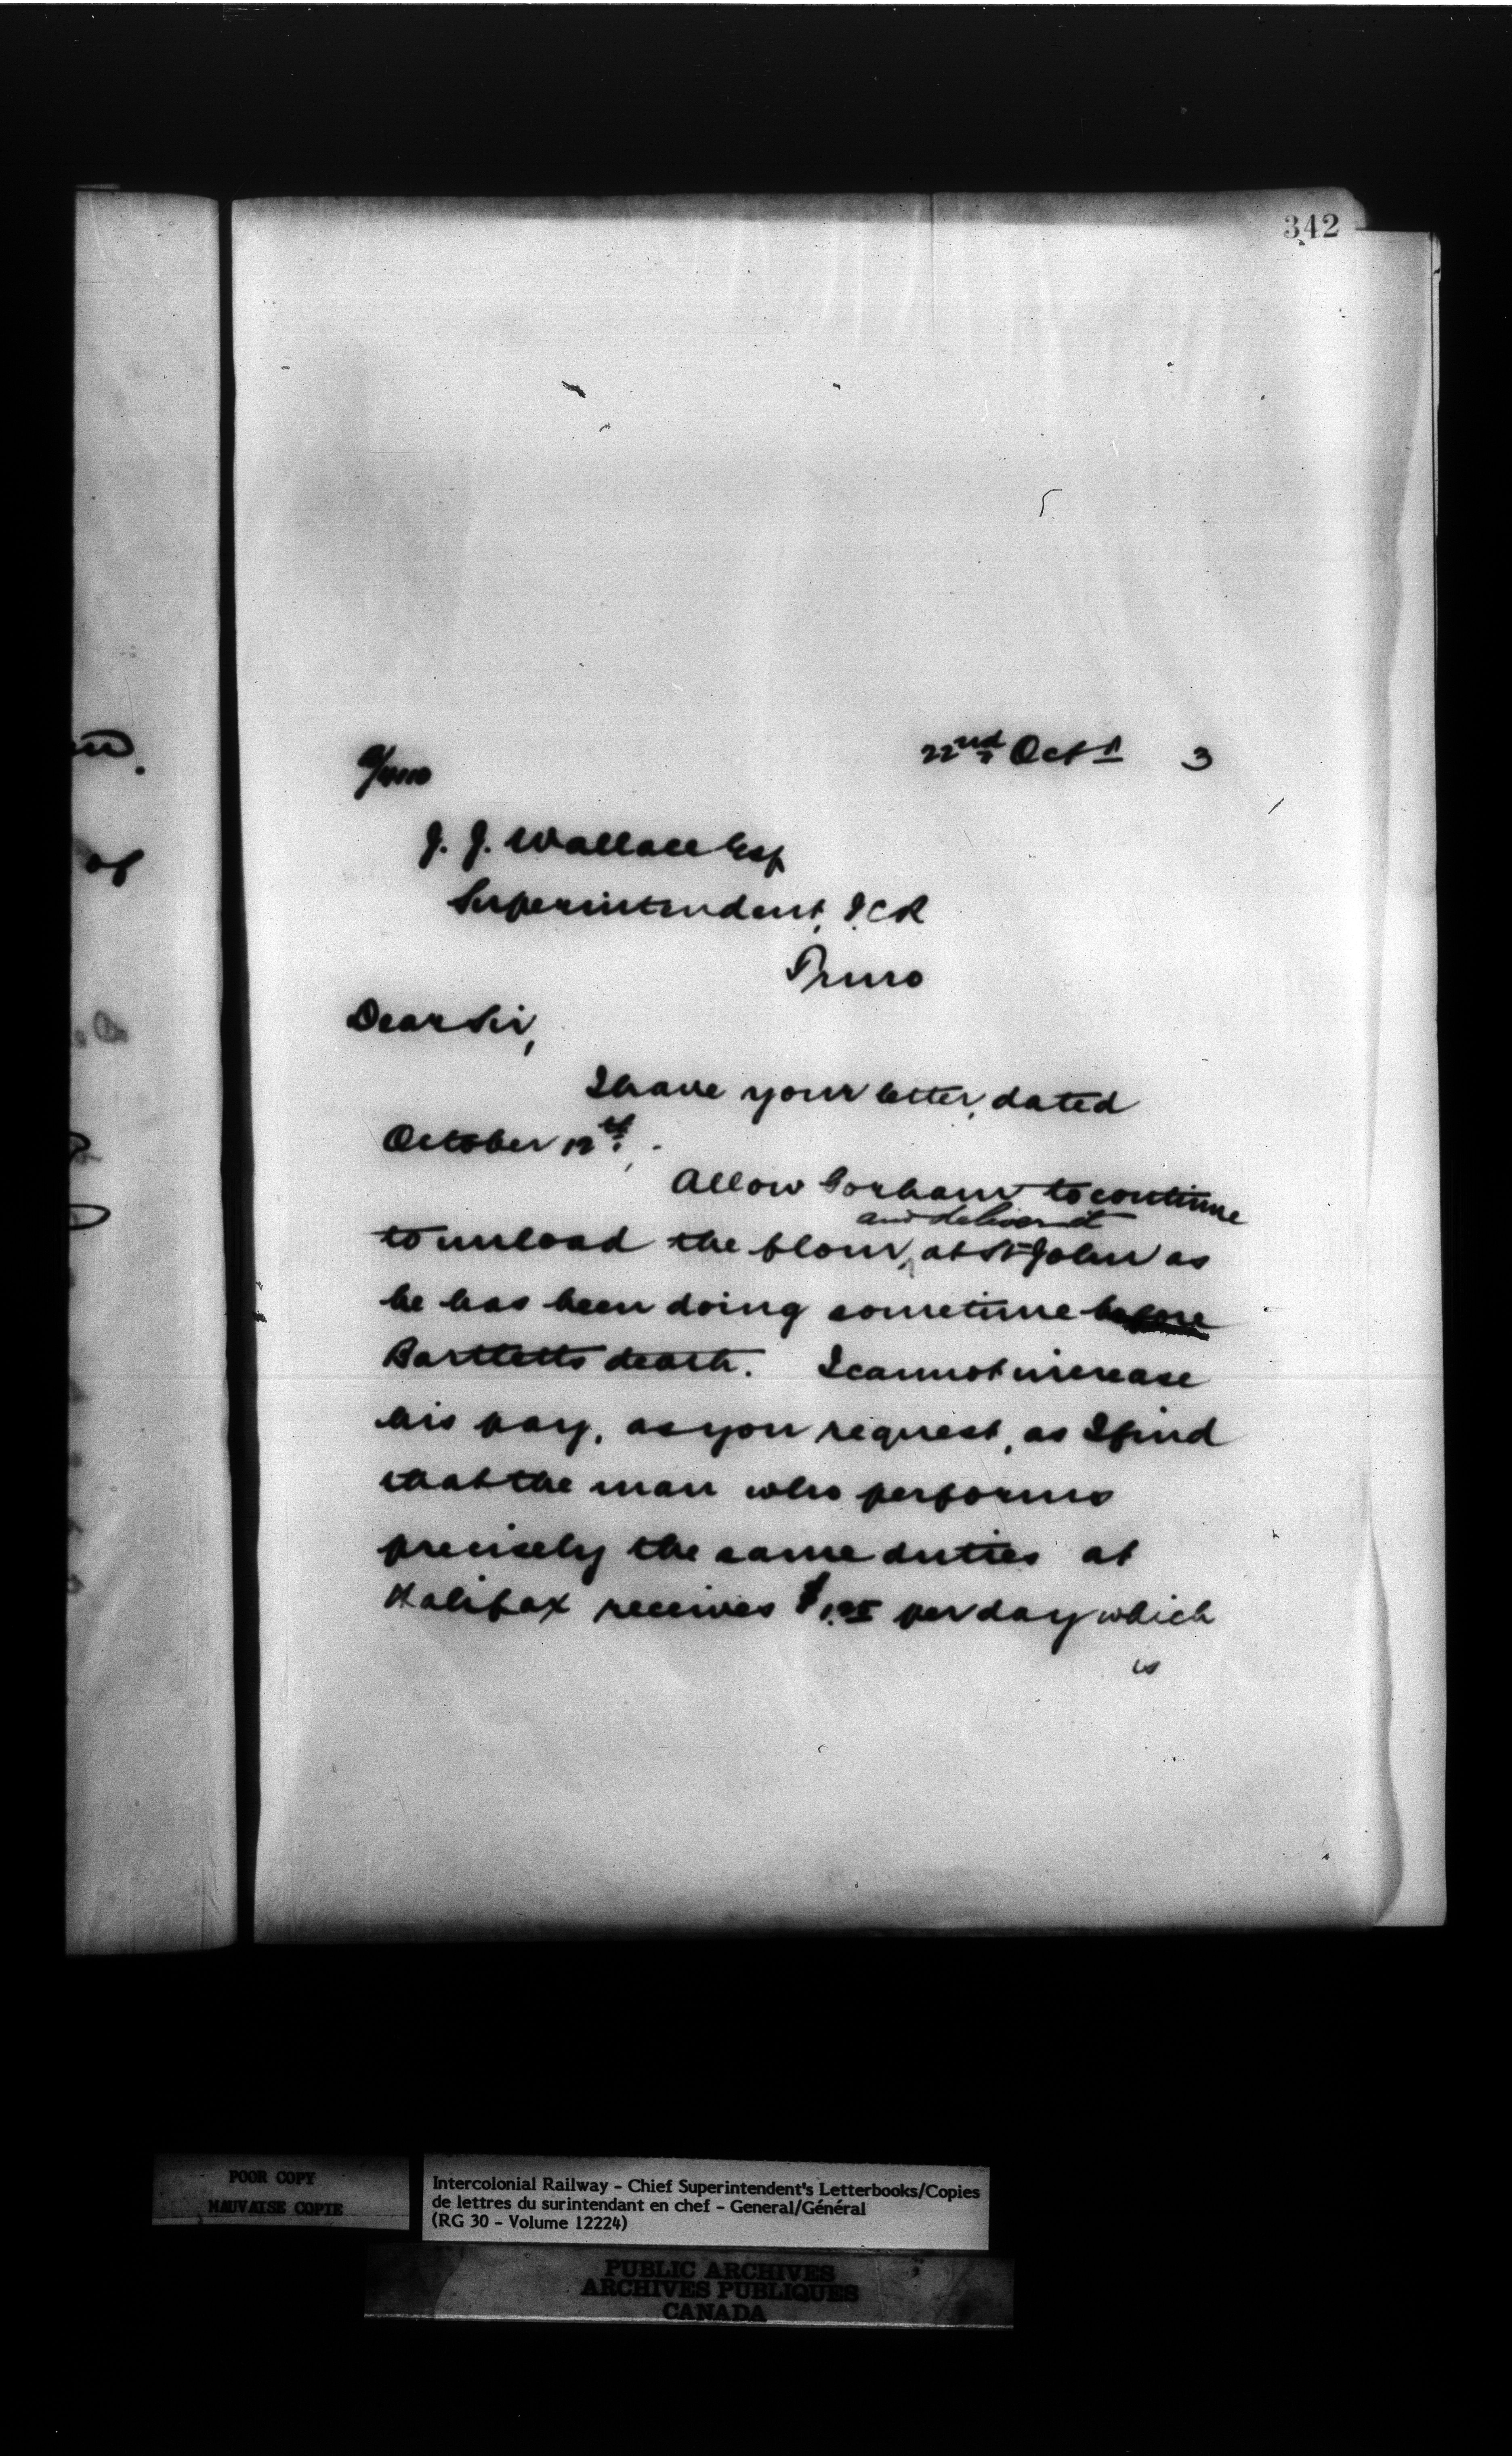 342
22nd Octr 3
J. J. Wallace Esq
Superintendent, I.C.R
Truro
Dear Sir,
I have your letter, dated
October 12th,
Allow Gorham to continue
and deliver it
to unload the flour, at St John as
he has been doing sometime before
Bartletts death. I cannot increase
his pay, as you request, as I find
that the man who performs
precisely the same duties at
Halifax receives $ per day which
is
of
POOR COPY
MAUVAISE COPIE
Intercolonial Railway - Chief Superintendent's Letterbooks/Copies
de lettres du surintendant en chef - General/Général
(RG 30 - Volume 12224)
PUBLIC ARCHIVES
ARCHIVES PUBLIQUES
CANADA